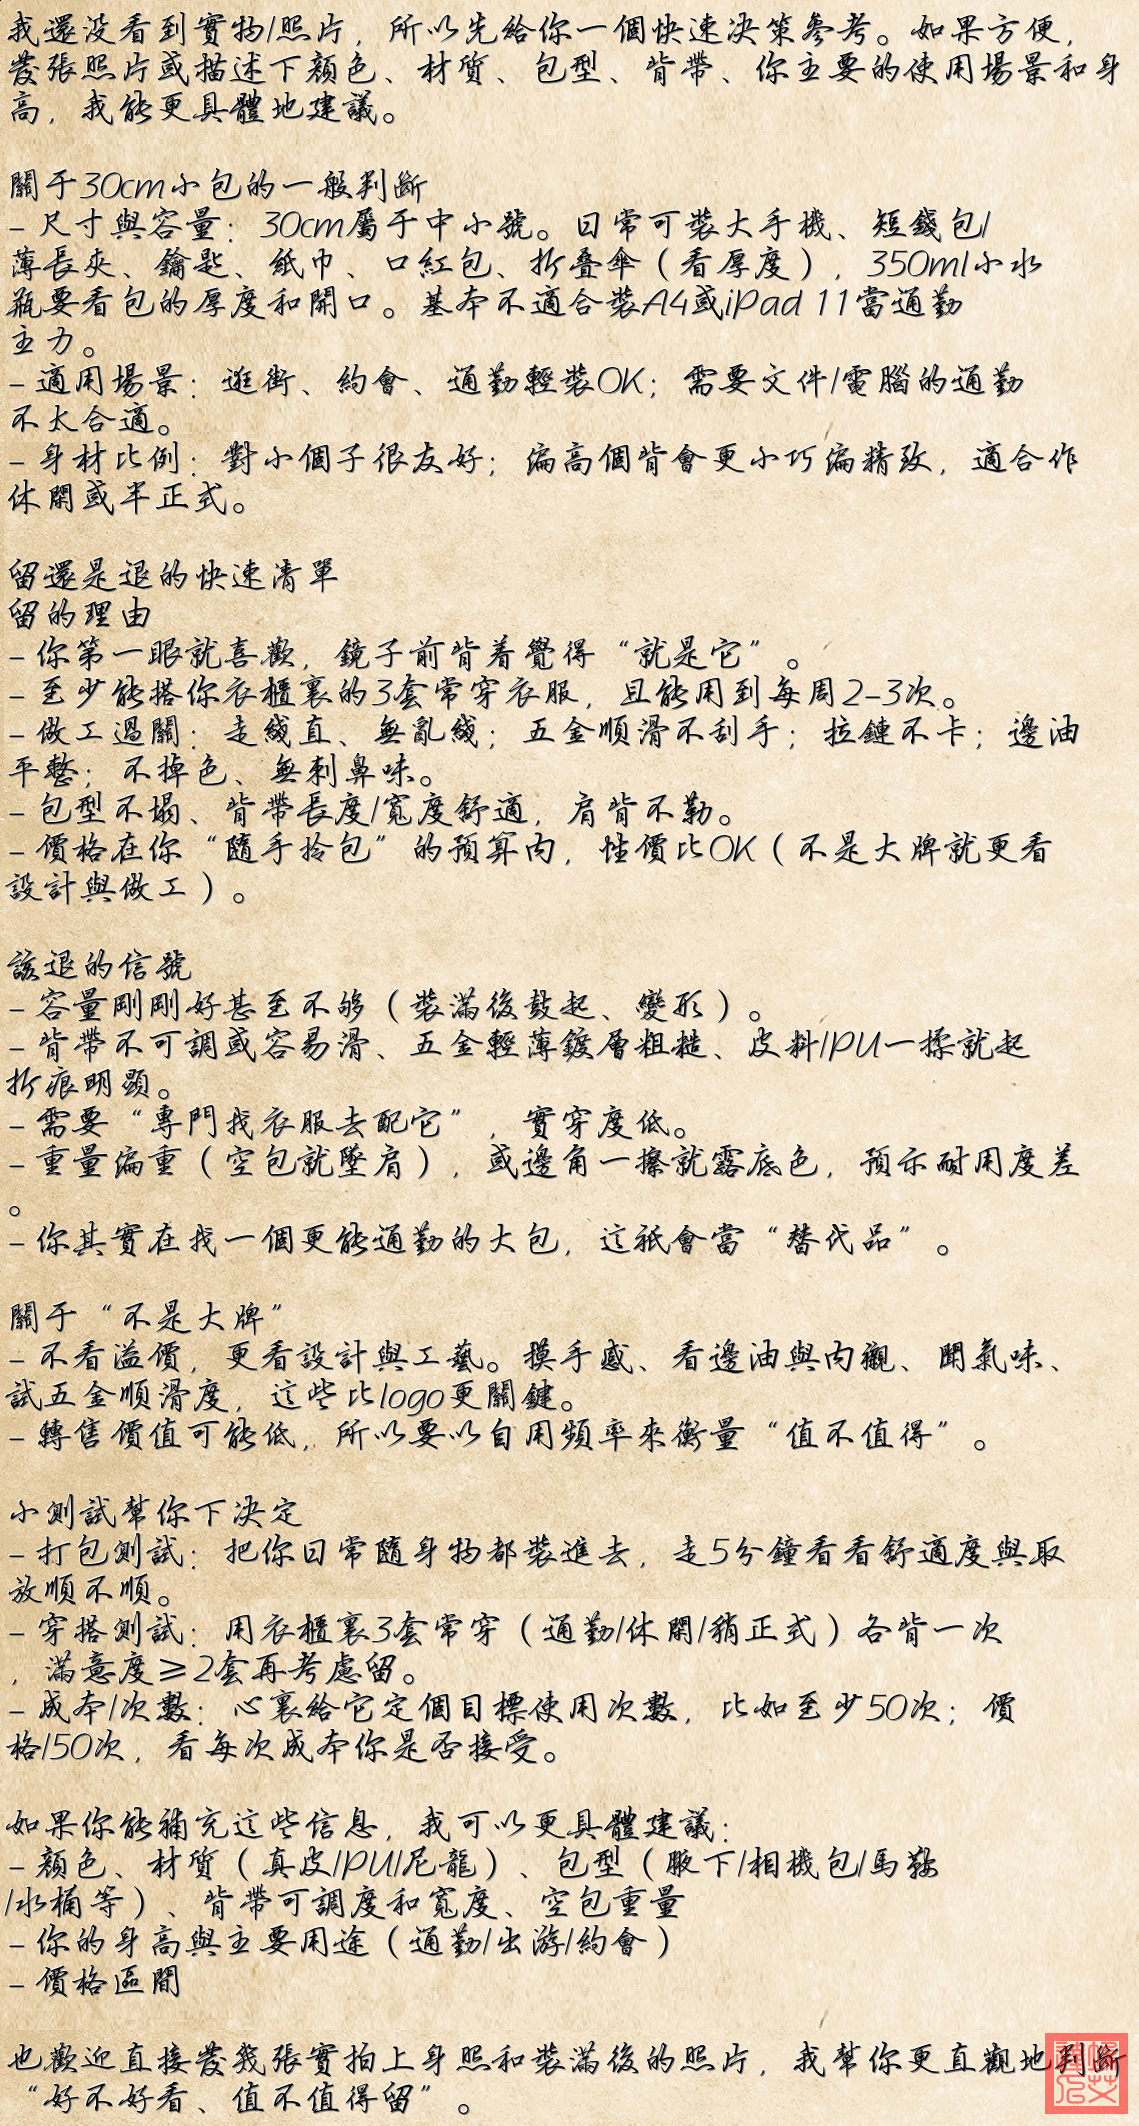 我還没看到實物/照片，所以先給你一個快速决策參考。如果方便，
發張照片或描述下顏色、材質、包型、背帶、你主要的使用場景和身
高，我能更具體地建議。
關于30cm小包的一般判斷
- 尺寸與容量：30cm屬于中小號。日常可裝大手機、短錢包/
薄長夾、鑰匙、紙巾、口紅包、折叠傘（看厚度），350ml小水
瓶要看包的厚度和開口。基本不適合裝A4或iPad 11當通勤
主力。
- 適用場景：逛街、約會、通勤輕裝OK；需要文件/電腦的通勤
不太合適。
- 身材比例：對小個子很友好；偏高個背會更小巧偏精致，適合作
休閑或半正式。
留還是退的快速清單
留的理由
- 你第一眼就喜歡，鏡子前背着覺得“就是它”。
- 至少能搭你衣櫃裏的3套常穿衣服，且能用到每周2-3次。
- 做工過關：走綫直、無亂綫；五金順滑不刮手；拉鏈不卡；邊油
平整；不掉色、無刺鼻味。
- 包型不塌、背帶長度/寬度舒適，肩背不勒。
- 價格在你“隨手拎包”的預算内，性價比OK（不是大牌就更看
設計與做工）。
該退的信號
- 容量剛剛好甚至不够（裝滿後鼓起、變形）。
- 背帶不可調或容易滑、五金輕薄鍍層粗糙、皮料/PU一揉就起
折痕明顯。
- 需要“專門找衣服去配它”，實穿度低。
- 重量偏重（空包就墜肩），或邊角一擦就露底色，預示耐用度差
。
- 你其實在找一個更能通勤的大包，這衹會當“替代品”。
關于“不是大牌”
- 不看溢價，更看設計與工藝。摸手感、看邊油與内襯、聞氣味、
試五金順滑度，這些比logo更關鍵。
- 轉售價值可能低，所以要以自用頻率來衡量“值不值得”。
小測試幫你下决定
- 打包測試：把你日常隨身物都裝進去，走5分鐘看看舒適度與取
放順不順。
- 穿搭測試：用衣櫃裏3套常穿（通勤/休閑/稍正式）各背一次
，滿意度≥2套再考慮留。
- 成本/次數：心裏給它定個目標使用次數，比如至少50次；價
格/50次，看每次成本你是否接受。
如果你能補充這些信息，我可以更具體建議：
- 顏色、材質（真皮/PU/尼龍）、包型（腋下/相機包/馬鞍
/水桶等）、背帶可調度和寬度、空包重量
- 你的身高與主要用途（通勤/出游/約會）
- 價格區間
也歡迎直接發幾張實拍上身照和裝滿後的照片，我幫你更直觀地判斷
“好不好看、值不值得留”。